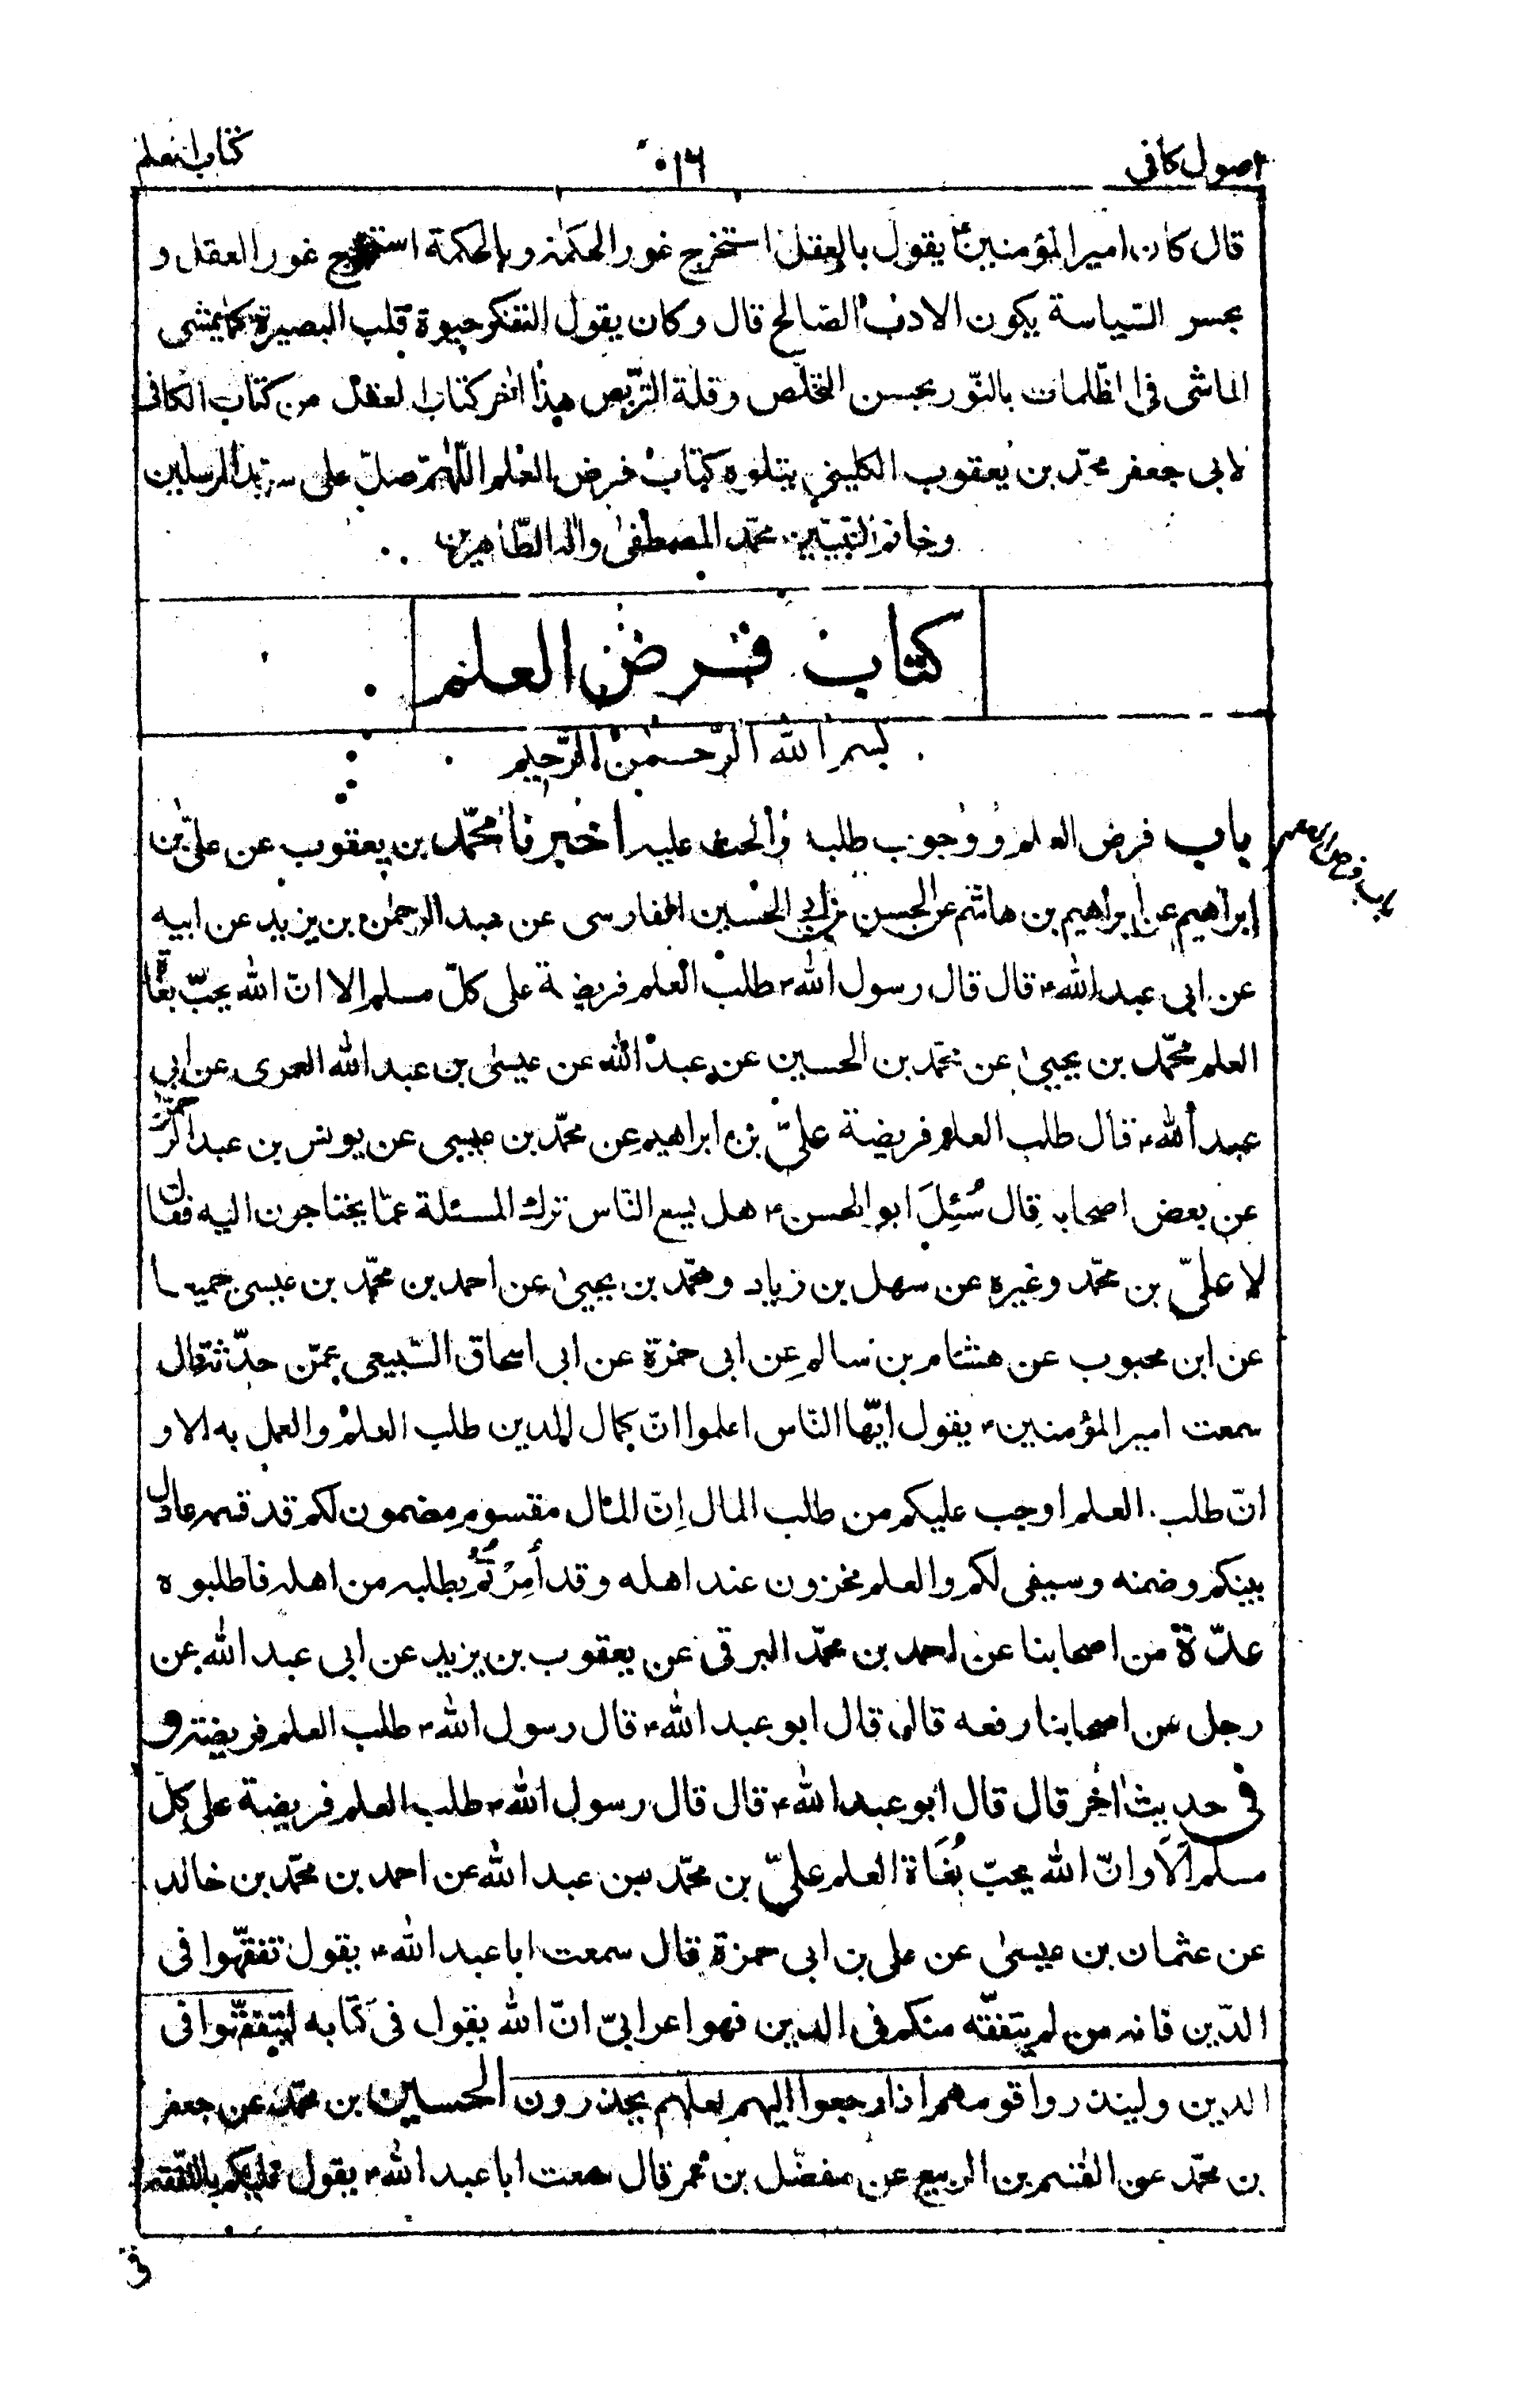 اصول كافى
١٦
كتاب العلم
قال كان امير المؤمنين ع يقول بالعقل استخرج غور الحكمة و بالحكمة استخرج غور العقل و
بحسن السّياسة يكون الادب الصّالح قال و كان يقول التفكر حيوة قلب البصير كما يمشى
الماشى فى الظّلمات بالنّور بحسن التخلّص و قلة التّربّص هذا اٰخر كتاب العقل من كتاب الكافى
لابى جعفر محمّد بن يعقوب الكلينى يتلوه كتاب فرض العلم اللّٰهمّ صلّ على سيّد المرسلين
و خاتم النّبيّين محمّد المصطفىٰ واٰله الطّاهرين
كتاب فرض العلم
بسم اللّٰه الرّحمٰن الرّحيم
باب فرض العلم
باب فرض العلم و وجوب طلبه و الحث عليه اخبرنا محمّد بن يعقوب عن علىّ بن
ابراهيم عن ابراهيم بن هاشم عن الحسن بن ابى الحسين الفارسى عن عبد الرحمٰن بن يزيد عن ابيه
عن ابى عبد اللّٰه ع قال قال رسول اللّٰه ص طلب العلم فريضة على كلّ مسلم الا انّ اللّٰه يحبّ بغاة
العلم محمّد بن يحيىٰ عن محمّد بن الحسين عن عبد اللّٰه عن عيسىٰ بن عبد اللّٰه العمرى عن ابى
عبد اللّٰه ع قال طلب العلم فريضة علىّ بن ابراهيم عن محمّد بن عيسى عن يونس بن عبد الرّحمٰن
عن بعض اصحابه قال سُئِلَ ابو الحسن ع هل يسع النّاس ترك المسئلة عمّا يحتاجون اليه فقال
لا علىّ بن محمّد وغيره عن سهل بن زياد و محمّد بن يحيىٰ عن احمد بن محمّد بن عيسى جميعا
عن ابن محبوب عن هشام بن سالم عن ابى حمزة عن ابى اسحاق السّبيعى عمّن حدّثه قال
سمعت امير المؤمنين ع يقول ايّها النّاس اعلموا انّ كمال الدين طلب العلم والعمل به الا و
انّ طلب العلم اوجب عليكم من طلب المال اِنّ المال مقسوم مضمون لكم قد قسمه عادل
بينكم و ضمنه و سيفى لكم و العلم مخزون عند اهله و قد اُمِرْتُمْ بطلبه من اهله فاطلبوه
عدّة من اصحابنا عن احمد بن محمّد البرقى عن يعقوب بن يزيد عن ابى عبد اللّٰه عن
رجل من اصحابنا رفعه قال قال ابو عبد اللّٰه ع قال رسول اللّٰه ص طلب العلم فريضة و
فى حديث اٰخر قال قال ابو عبد اللّٰه ع قال قال رسول اللّٰه ص طلب العلم فريضة على كلّ
مسلم اَلاَ و انّ اللّٰه يحبّ بُغَاة العلم علىّ بن محمّد بن عبد اللّٰه عن احمد بن محمّد بن خالد
عن عثمان بن عيسىٰ عن على بن ابى حمزة قال سمعت ابا عبد اللّٰه ع يقول تفقّهوا فى
الدّين فانه من لم يتفقّه منكم فى الدين فهو اعرابىّ انّ اللّٰه يقول فى كتابه ليتفقّهوا فى
الدين و لينذروا قومهم اذا رجعوا اليهم لعلهم يحذرون الحسين بن محمّد عن جعفر
بن محمّد عن القٰسم بن الربيع عن مفضّل بن عمر قال سمعت ابا عبد اللّٰه ع يقول عليكم بالتّفقه
فى